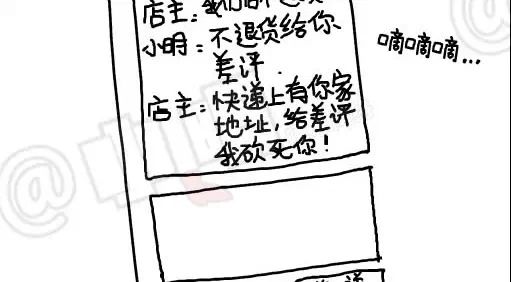 店主:我们店不退货
小明:不退货给你
差评.
店主:快递上有你家
地址,给差评
我砍死你!
嘀嘀嘀...